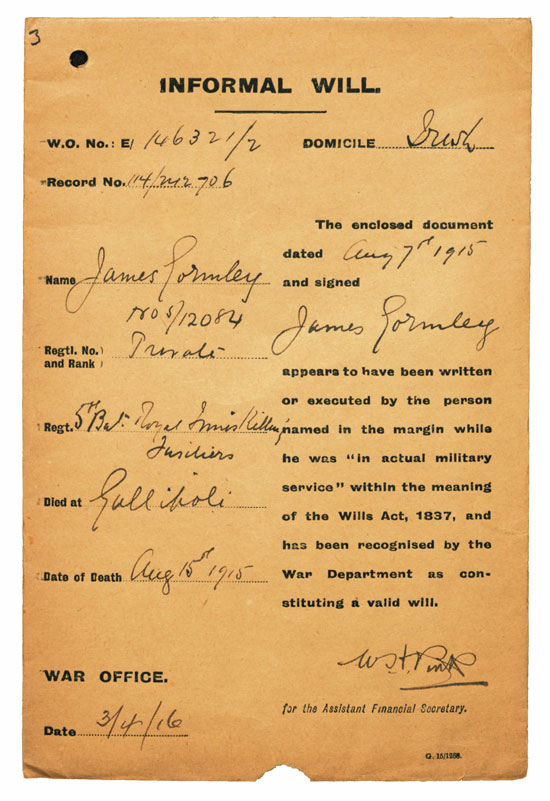 3
INFORMAL WILL.
W.O. No.: E/ 146321/2
DOMICILE Irish
Record No. 114/
The enclosed document
dated Aug 7th 1915
and signed
Name James Gormley
No 5/12084
James Gormley
Regtl. No.)
and Rank) Private
appears to have been written
or executed by the person
Regt. 5th Bat. Royal Innis Killing
named in the margin while
Fusiliers
he was "in actual military
service" within the meaning
Died at Gallipoli
of the Wills Act, 1837, and
has been recognised by the
Date of Death Aug 15th 1915
War Department as con-
stituting a valid will.
WAR OFFICE.
for the Assistant Financial Secretary.
Date 3/4/16
G. 15/1258.